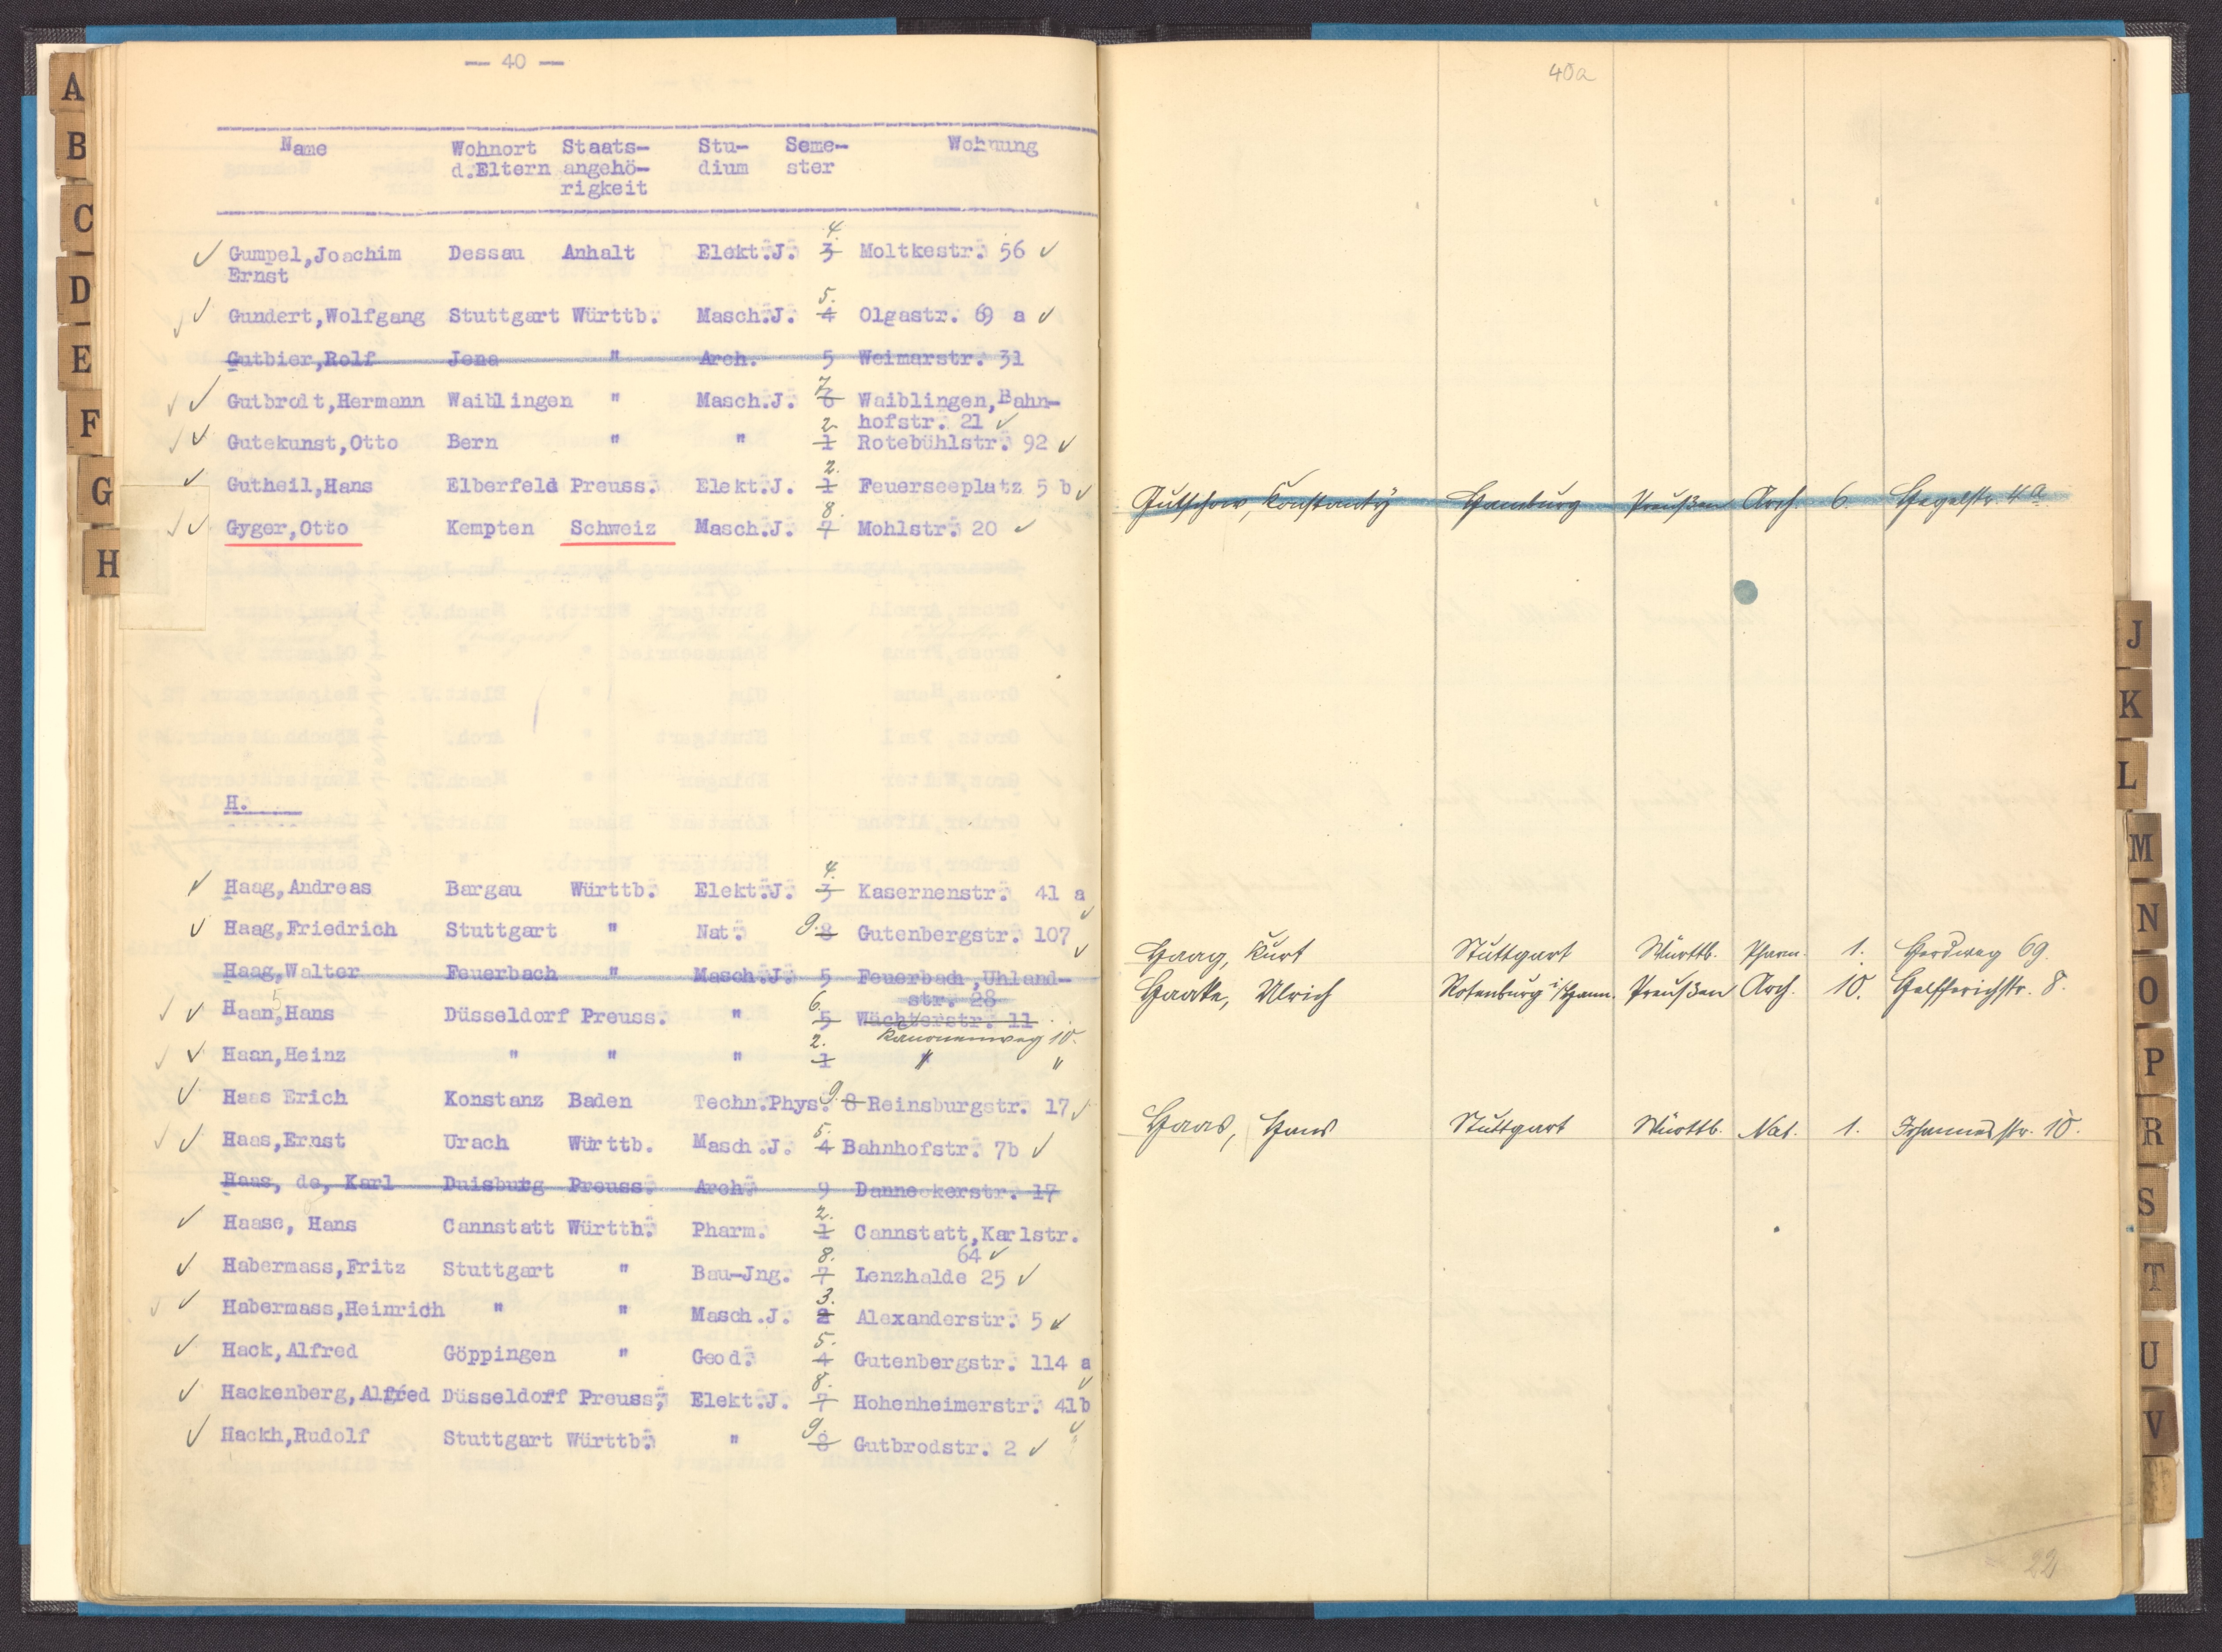 — 40 —
Name Wohnort Staats- Stu- Seme- Wohnung
d.Eltern angehö- dium ster
rigkeit
Gumpel,Joachim Dessau Anhalt Elekt.J. 3 4. Moltkestr. 56
Ernst
Gundert,Wolfgang Stuttgart Württb. Masch.J. 4 5. Olgastr. 69 a
Gutbier,Rolf Jena " Arch. 5 Weimarstr. 31
Gutbrolt,Hermann Waiblingen " Masch.J. 6 7. Waiblingen,Bahn-
hofstr. 21
Gutekunst,Otto Bern " " 1 2. Rotebühlstr. 92
Gutheil,Hans Elberfeld Preuss. Elekt.J. 1 2. Feuerseeplatz 5 b
Gyger,Otto Kempten Schweiz Masch.J. 7 8. Mohlstr. 20
H.
Haag,Andreas Bargau Württb. Elekt.J. 3 4. Kasernenstr. 41 a
Haag,Friedrich Stuttgart " Nat. 8 9. Gutenbergstr. 107
Haag,Walter Feuerbach " Masch.J. 5 Feuerbach,Uhland-
str. 28
Haan,Hans Düsseldorf Preuss. " 5 6. Wächterstr. 11
Kanonenweg 10.
Haan,Heinz " " " 1 2. " "
Haas Erich Konstanz Baden Techn.Phys. 8 9. Reinsburgstr. 17
Haas,Ernst Urach Württb. Masch.J. 4 5. Bahnhofstr. 7b
Haas, de, Karl Duisburg Preuss. Arch. 9 Danneckerstr. 17
Haase, Hans Cannstatt Württb. Pharm. 1 2. Cannstatt,Karlstr.
64
Habermass,Fritz Stuttgart " Bau-Jng. 7 8. Lenzhalde 25
Habermass,Heinrich " " Masch.J. 2 3. Alexanderstr. 5
Hack,Alfred Göppingen " Geod. 4 5. Gutenbergstr. 114 a
Hackenberg,Alfred Düsseldorf Preuss, Elekt.J. 7 8. Hohenheimerstr. 41b
Hackh,Rudolf Stuttgart Württb. " 8 9. Gutbrodstr. 2
40a
Gutschow, Konstanty Hamburg Preußen Arch. 6. Hegelstr. 4a
Haag, Kurt Stuttgart Württb. Pharm. 1. Herdweg 69.
Haacke, Ulrich Rotenburg i/Hann. Preußen Arch. 10. Helfferichstr. 8.
Haas, Hans Stuttgart Württb. Nat. 1. Johannesstr. 10.
22
A
B
C
D
E
F
G
H
J
K
L
M
N
O
P
R
S
T
U
V